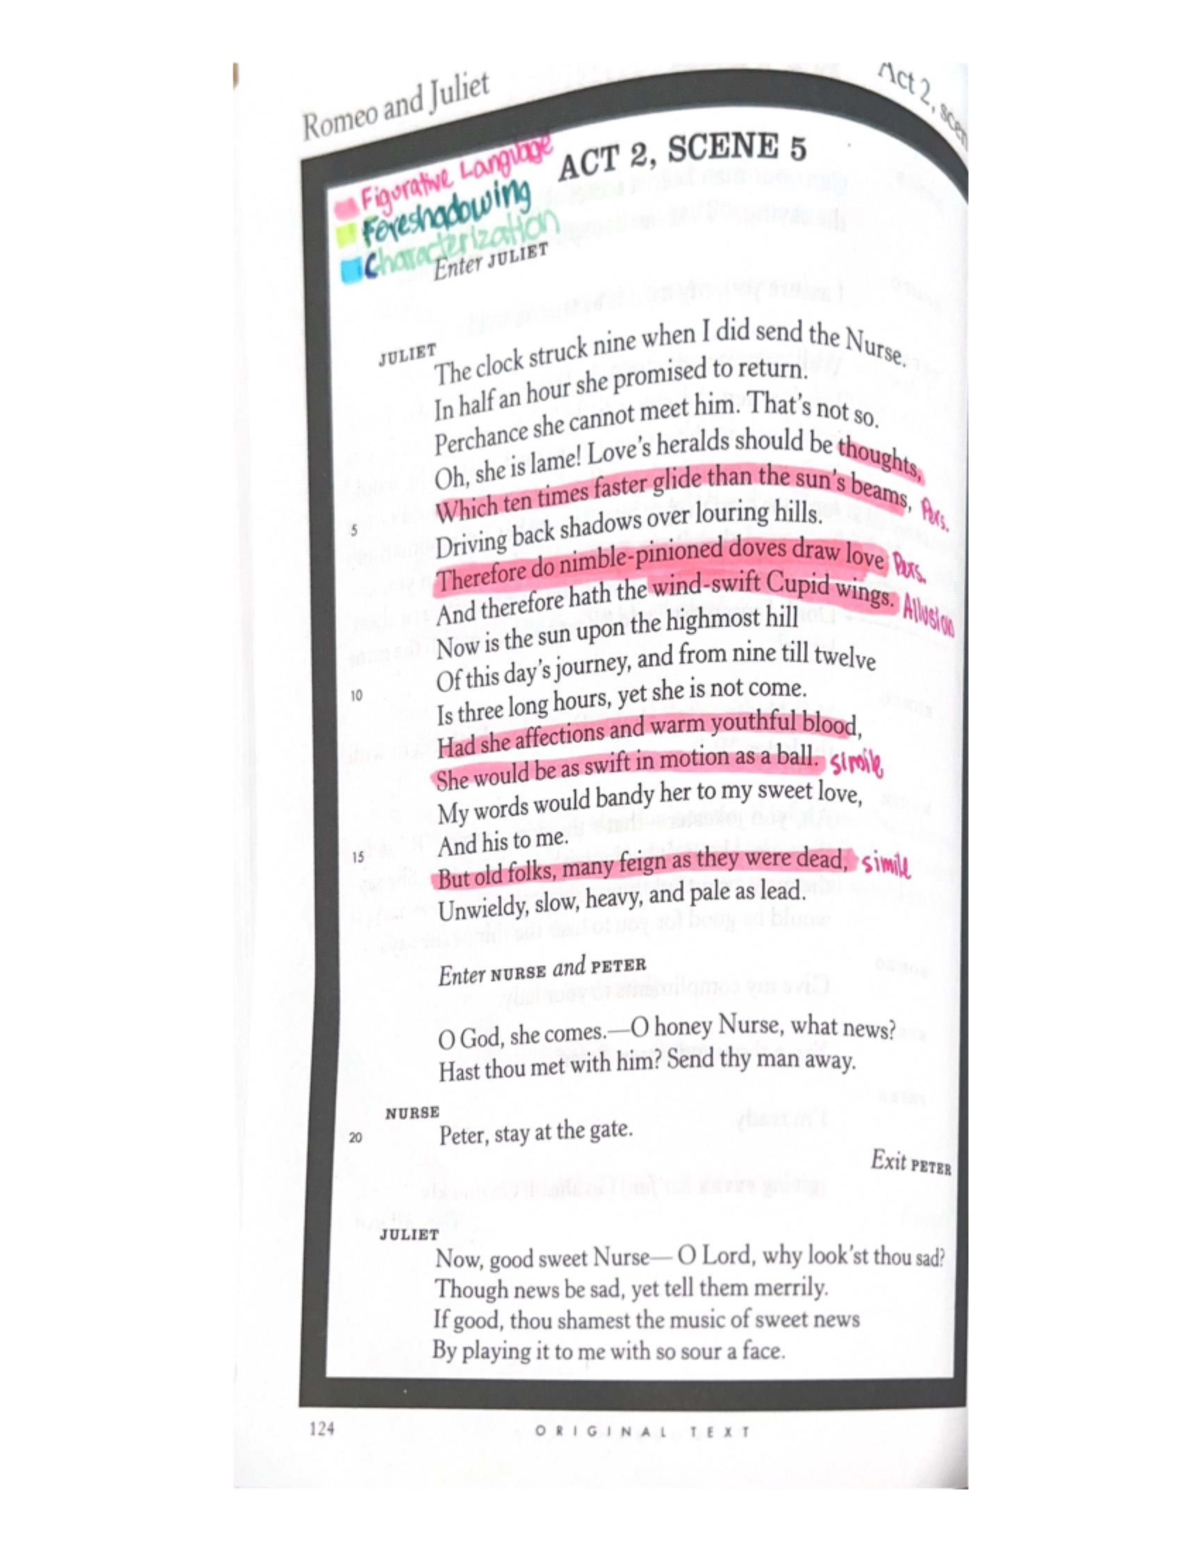 Romeo and Juliet
Act 2, scen
Figurative Language
Foreshadowing
Characterization
ACT 2, SCENE 5
Enter JULIET
JULIET
The clock struck nine when I did send the Nurse.
In half an hour she promised to return.
Perchance she cannot meet him. That's not so.
Oh, she is lame! Love's heralds should be thoughts,
5 Which ten times faster glide than the sun's beams, Pers.
Driving back shadows over louring hills.
Therefore do nimble-pinioned doves draw love Pers.
And therefore hath the wind-swift Cupid wings. Allusion
Now is the sun upon the highmost hill
10 Of this day's journey, and from nine till twelve
Is three long hours, yet she is not come.
Had she affections and warm youthful blood,
She would be as swift in motion as a ball. simile
My words would bandy her to my sweet love,
15 And his to me.
But old folks, many feign as they were dead, simile
Unwieldy, slow, heavy, and pale as lead.
Enter NURSE and PETER
O God, she comes.—O honey Nurse, what news?
Hast thou met with him? Send thy man away.
NURSE
20 Peter, stay at the gate.
Exit PETER
JULIET
Now, good sweet Nurse— O Lord, why look'st thou sad?
Though news be sad, yet tell them merrily.
If good, thou shamest the music of sweet news
By playing it to me with so sour a face.
124
ORIGINAL TEXT